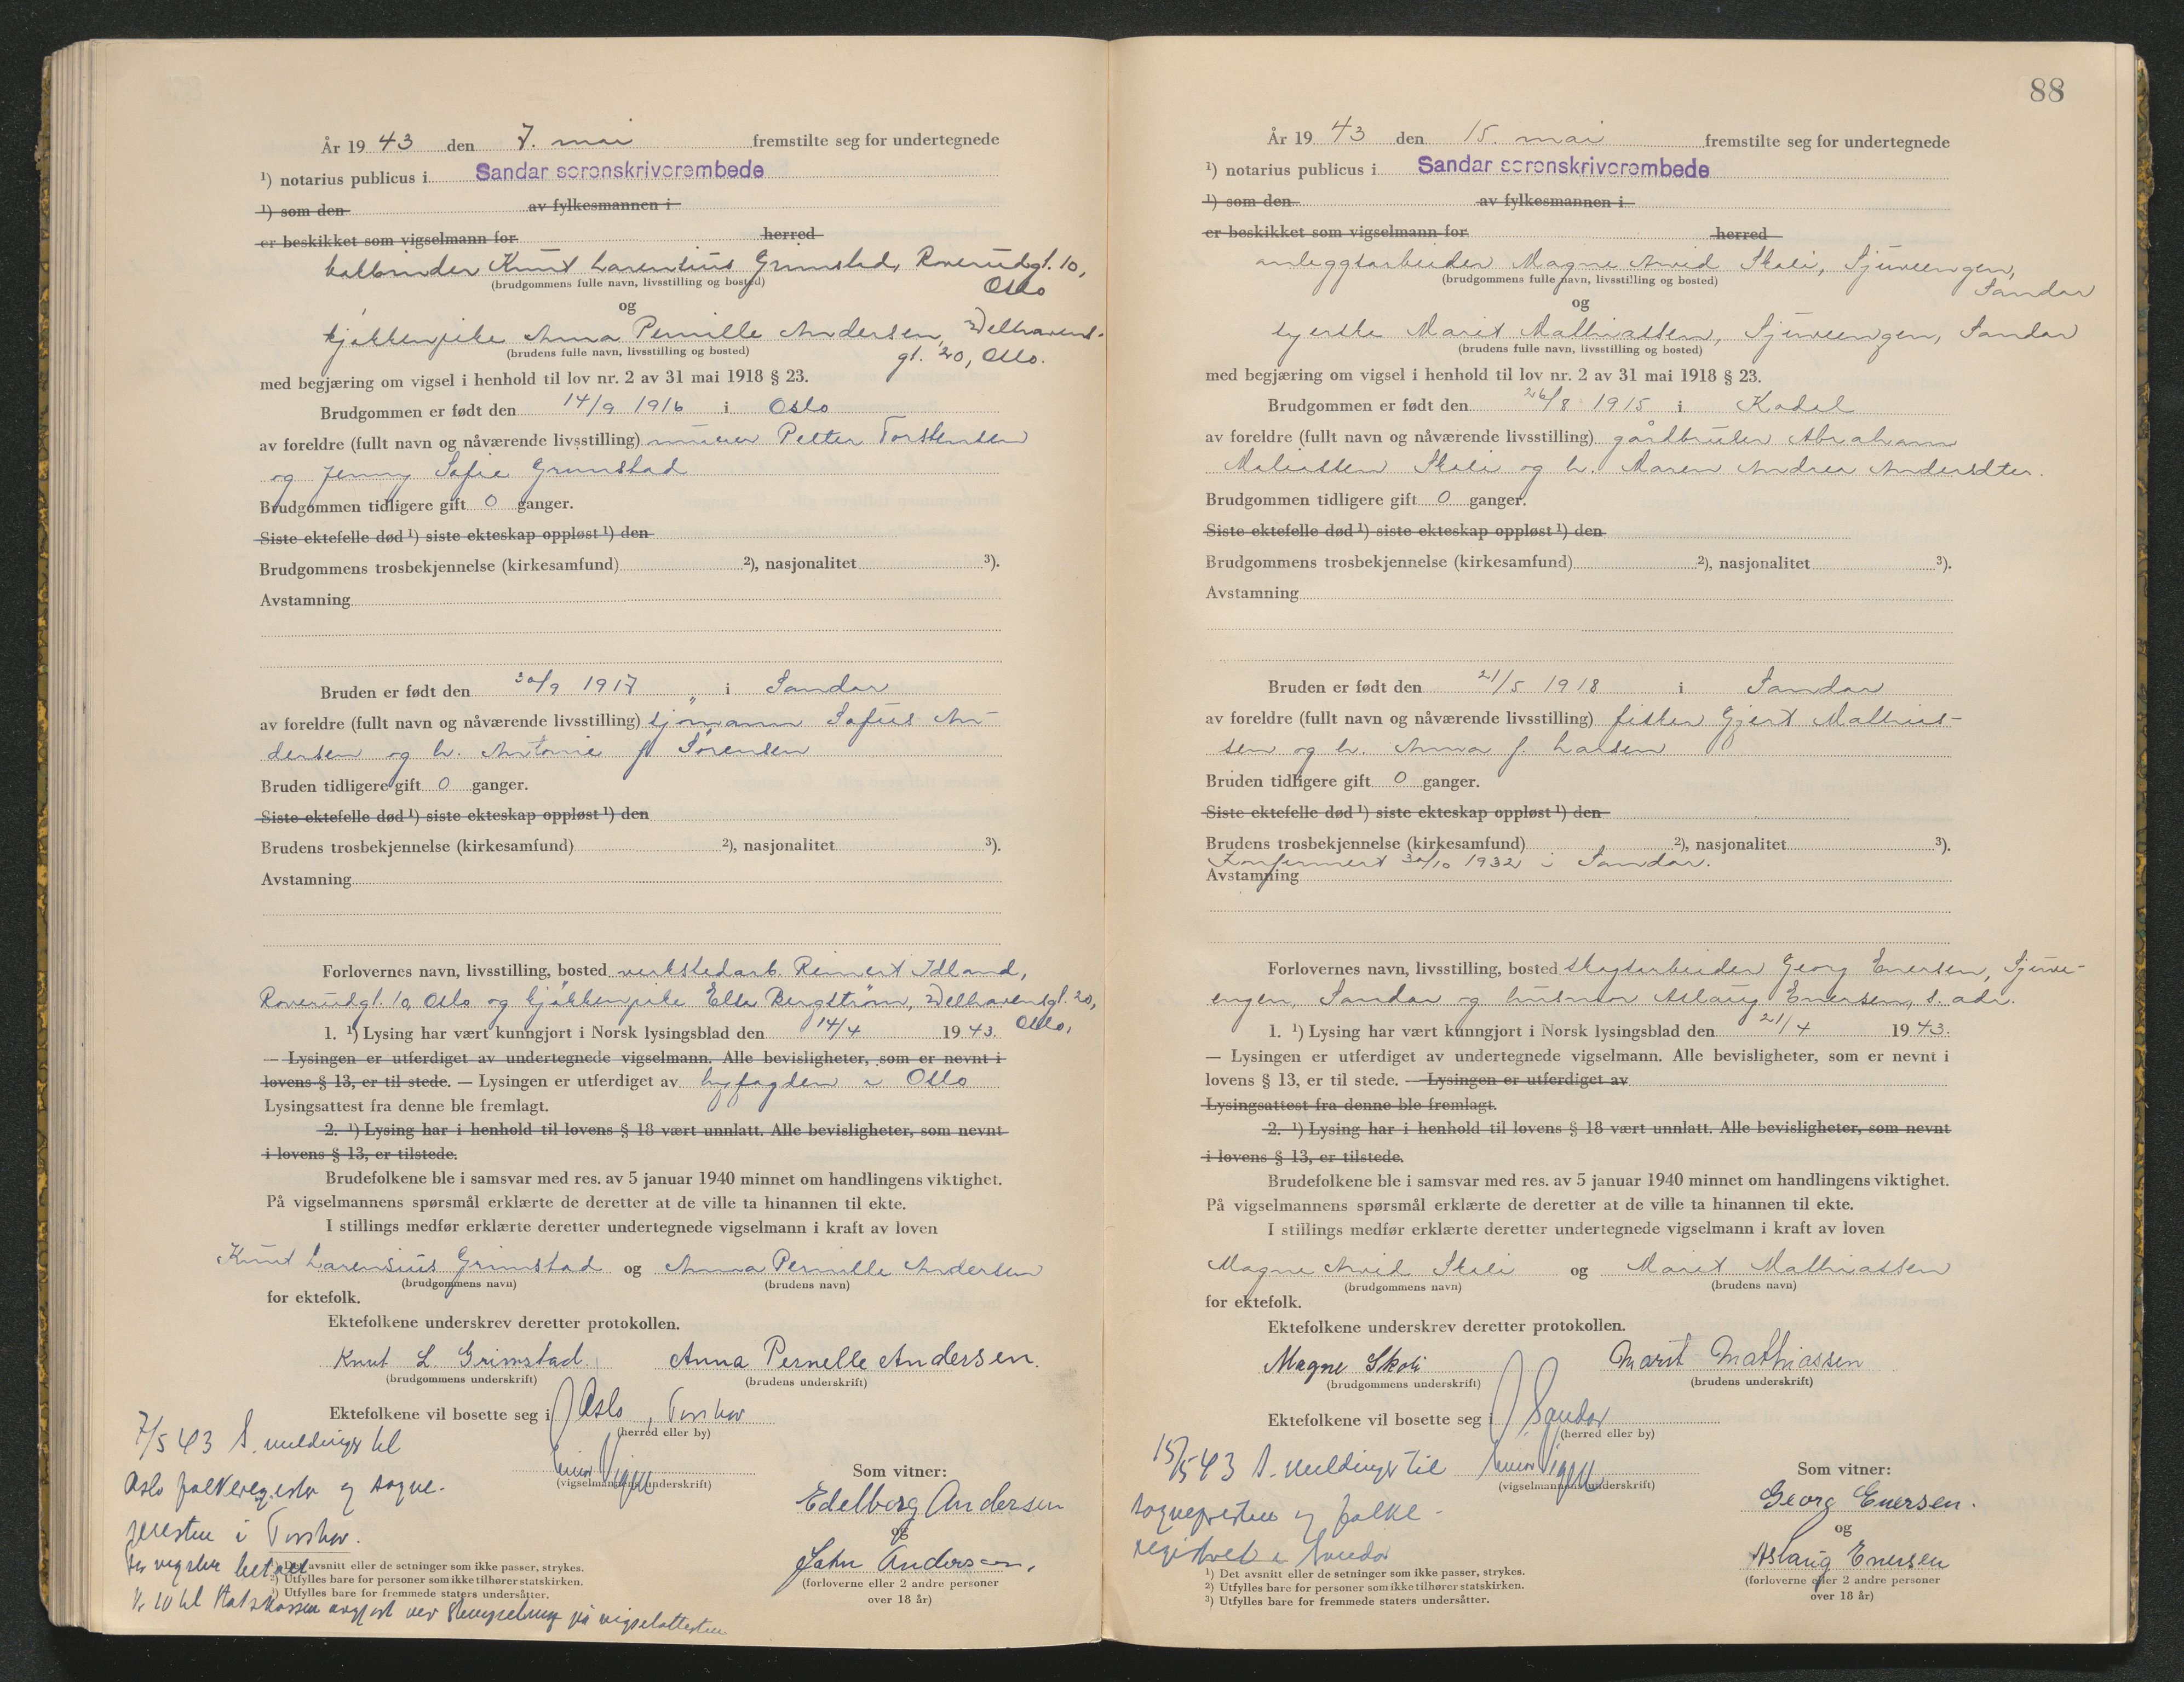 År 19 43 den 7. mai fremstilte seg for undertegnede
¹) notarius publicus i Sandar sorenskriverembede
¹) som den av fylkesmannen i
er beskikket som vigselmann for herred
Knut Larensius Grimstad, Roverudgt. 10,
(brudgommens fulle navn, livsstilling og bosted) Oslo
og
kjøkkenpike Anna Pernille Andersen, Welhavens-
(brudens fulle navn, livsstilling og bosted) gt. 20, Oslo.
med begjæring om vigsel i henhold til lov nr. 2 av 31 mai 1918 § 23.
Brudgommen er født den 14/9 1916 i Oslo
av foreldre (fullt navn og nåværende livsstilling) murer Petter Torstensen
og Jenny Sofie Grimstad
Brudgommen tidligere gift 0 ganger.
Siste ektefelle død ¹) siste ekteskap oppløst ¹) den
Brudgommens trosbekjennelse (kirkesamfund) ²), nasjonalitet ³).
Avstamning
Bruden er født den 30/9 1917 i Sandar
av foreldre (fullt navn og nåværende livsstilling) sjømann Sofus An-
dersen og h. Antonie f. Sørensen
Bruden tidligere gift 0 ganger.
Siste ektefelle død ¹) siste ekteskap oppløst ¹) den
Brudens trosbekjennelse (kirkesamfund) ²), nasjonalitet ³).
Avstamning
Forlovernes navn, livsstilling, bosted verkstedarb. Reinert Idland,
Roverudgt. 10, Oslo og kjøkkenpike Ella Bergstrøm, Welhavensgt. 20,
1. ¹) Lysing har vært kunngjort i Norsk lysingsblad den 14/4 1943. Oslo.
— Lysingen er utferdiget av undertegnede vigselmann. Alle bevisligheter, som er nevnt i
lovens § 13, er til stede. — Lysingen er utferdiget av byfogden i Oslo
Lysingsattest fra denne ble fremlagt.
2. ¹) Lysing har i henhold til lovens § 18 vært unnlatt. Alle bevisligheter, som nevnt
i lovens § 13, er tilstede.
Brudefolkene ble i samsvar med res. av 5 januar 1940 minnet om handlingens viktighet.
På vigselmannens spørsmål erklærte de deretter at de ville ta hinannen til ekte.
I stillings medfør erklærte deretter undertegnede vigselmann i kraft av loven
Knut Larensius Grimstad og Anna Pernille Andersen
(brudgommens navn) (brudens navn)
for ektefolk.
Ektefolkene underskrev deretter protokollen.
Knut L. Grimstad. Anna Pernelle Andersen.
(brudgommens underskrift) (brudens underskrift)
Ektefolkene vil bosette seg i Oslo, Torshov
(herred eller by)
7/5 43 S. meldinger til
Oslo folkeregister og sogne-
presten i Torshov.
(vigselmannens underskrift)
Som vitner:
Edelborg Andersen
og
John Andersen,
(forloverne eller 2 andre personer
over 18 år)
For vigsler betalt
¹) Det avsnitt eller de setninger som ikke passer, strykes.
²) Utfylles bare for personer som ikke tilhører statskirken.
³) Utfylles bare for fremmede staters undersåtter.
Kr 10 til statskassen avgjort ved stempeling på vigselattesten
88
År 19 43 den 15. mai fremstilte seg for undertegnede
¹) notarius publicus i Sandar sorenskriverembede
¹) som den av fylkesmannen i
er beskikket som vigselmann for herred
anleggsarbeider Magne Arvid Skoli, Sjuveengen,
(brudgommens fulle navn, livsstilling og bosted) Sandar
og
syerske Marit Mathiassen, Sjuveengen, Sandar
(brudens fulle navn, livsstilling og bosted)
med begjæring om vigsel i henhold til lov nr. 2 av 31 mai 1918 § 23.
Brudgommen er født den 26/8 1915 i Kodal
av foreldre (fullt navn og nåværende livsstilling) gårdbruker Abraham
Skoli og h. Maren Andrea Andersdter.
Brudgommen tidligere gift 0 ganger.
Siste ektefelle død ¹) siste ekteskap oppløst ¹) den
Brudgommens trosbekjennelse (kirkesamfund) ²), nasjonalitet ³).
Avstamning
Bruden er født den 21/5 1918 i Sandar
av foreldre (fullt navn og nåværende livsstilling) fisker Gjert Mathias-
sen og h. Anna f. Larsen
Bruden tidligere gift 0 ganger.
Siste ektefelle død ¹) siste ekteskap oppløst ¹) den
Brudens trosbekjennelse (kirkesamfund) ²), nasjonalitet ³).
Konfirmert 30/10 1932 i Sandar.
Avstamning
Forlovernes navn, livsstilling, bosted skogsarbeider Georg Enersen, Sjuve-
engen, Sandar og husmor Aslaug Enersen, s. adr.
1. ¹) Lysing har vært kunngjort i Norsk lysingsblad den 21/4 1943.
— Lysingen er utferdiget av undertegnede vigselmann. Alle bevisligheter, som er nevnt i
lovens § 13, er til stede. — Lysingen er utferdiget av
Lysingsattest fra denne ble fremlagt.
2. ¹) Lysing har i henhold til lovens § 18 vært unnlatt. Alle bevisligheter, som nevnt
i lovens § 13, er tilstede.
Brudefolkene ble i samsvar med res. av 5 januar 1940 minnet om handlingens viktighet.
På vigselmannens spørsmål erklærte de deretter at de ville ta hinannen til ekte.
I stillings medfør erklærte deretter undertegnede vigselmann i kraft av loven
Magne Arvid Skoli og Marit Mathiassen
(brudgommens navn) (brudens navn)
for ektefolk.
Ektefolkene underskrev deretter protokollen.
Magne Skoli Marit Mathiassen
(brudgommens underskrift) (brudens underskrift)
Ektefolkene vil bosette seg i Sandar
(herred eller by)
15/5 43 S. meldinger til
sognepresten og folke-
registret i Sandar
(vigselmannens underskrift)
Som vitner:
Georg Enersen.
og
Aslaug Enersen
(forloverne eller 2 andre personer
over 18 år)
¹) Det avsnitt eller de setninger som ikke passer, strykes.
²) Utfylles bare for personer som ikke tilhører statskirken.
³) Utfylles bare for fremmede staters undersåtter.